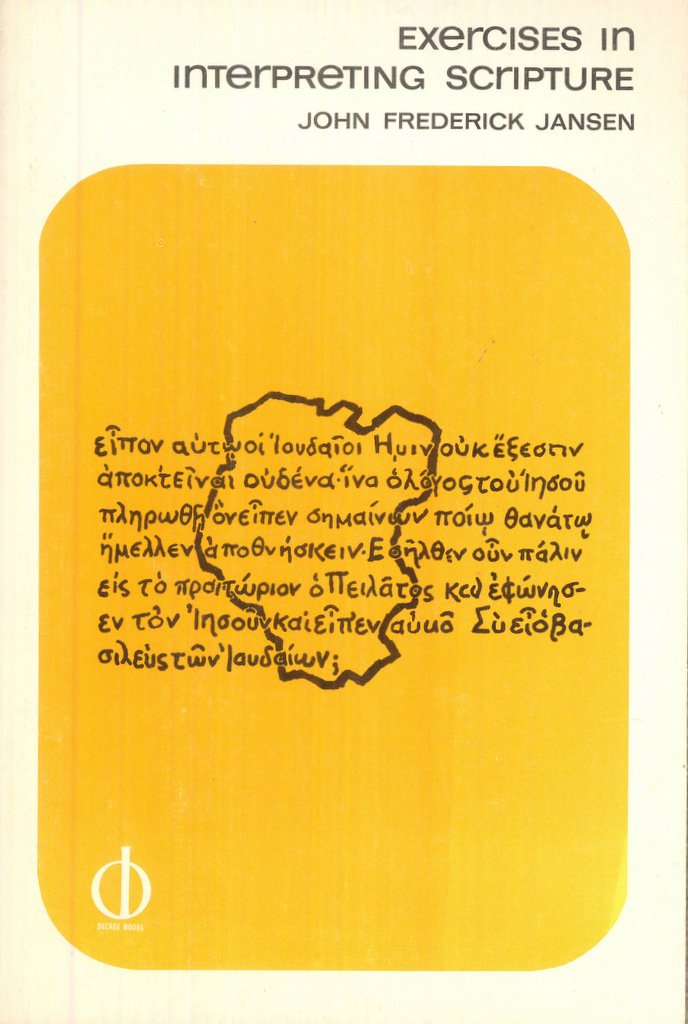 Exercises in
Interpreting Scripture
JOHN FREDERICK JANSEN
εἶπον αὐτῳ οἱ Ἰουδαῖοι Ἡμιν οὐκ ἔξεστιν
ἀποκτεῖναι οὐδένα· ἵνα ὁ λόγος τοῦ Ἰησοῦ
πληρωθῇ ὃν εἶπεν σημαίνων ποίῳ θανάτῳ
ἤμελλεν ἀποθνήσκειν. Εσῆλθεν οὖν πάλιν
εἰς τὸ πραιτώριον ὁ Πειλᾶτος καὶ ἐφώνησ-
εν τὸν Ἰησοῦν καὶ εἶπεν αὐκῶ Σὺ εἶ ὁ βα-
σιλεὺς τῶν Ἰαυδαίων;
DECADE BOOKS